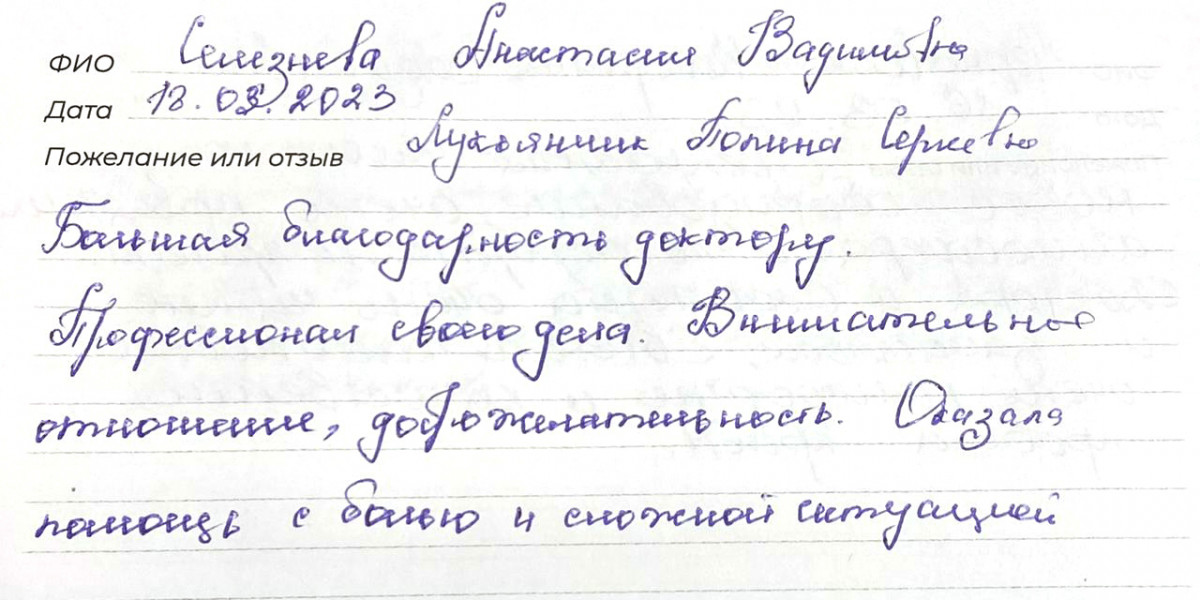 ФИО Селезнева Анастасия Вадимовна
Дата 18.03.2023
Пожелание или отзыв Лукьянчик Полина Сергеевна
Большая благодарность доктору.
Профессионал своего дела. Внимательное
отношение, доброжелательность. Оказала
помощь с болью и сложной ситуацией